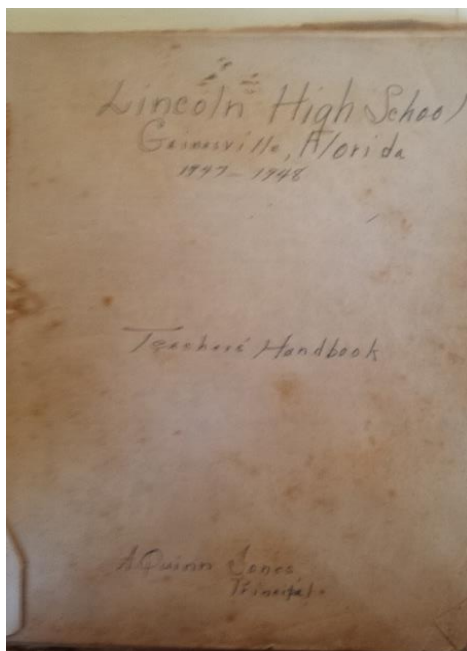 Lincoln High School
Gainesville, Florida
1947-1948
Teachers' Handbook
A Quinn Jones
Principal.